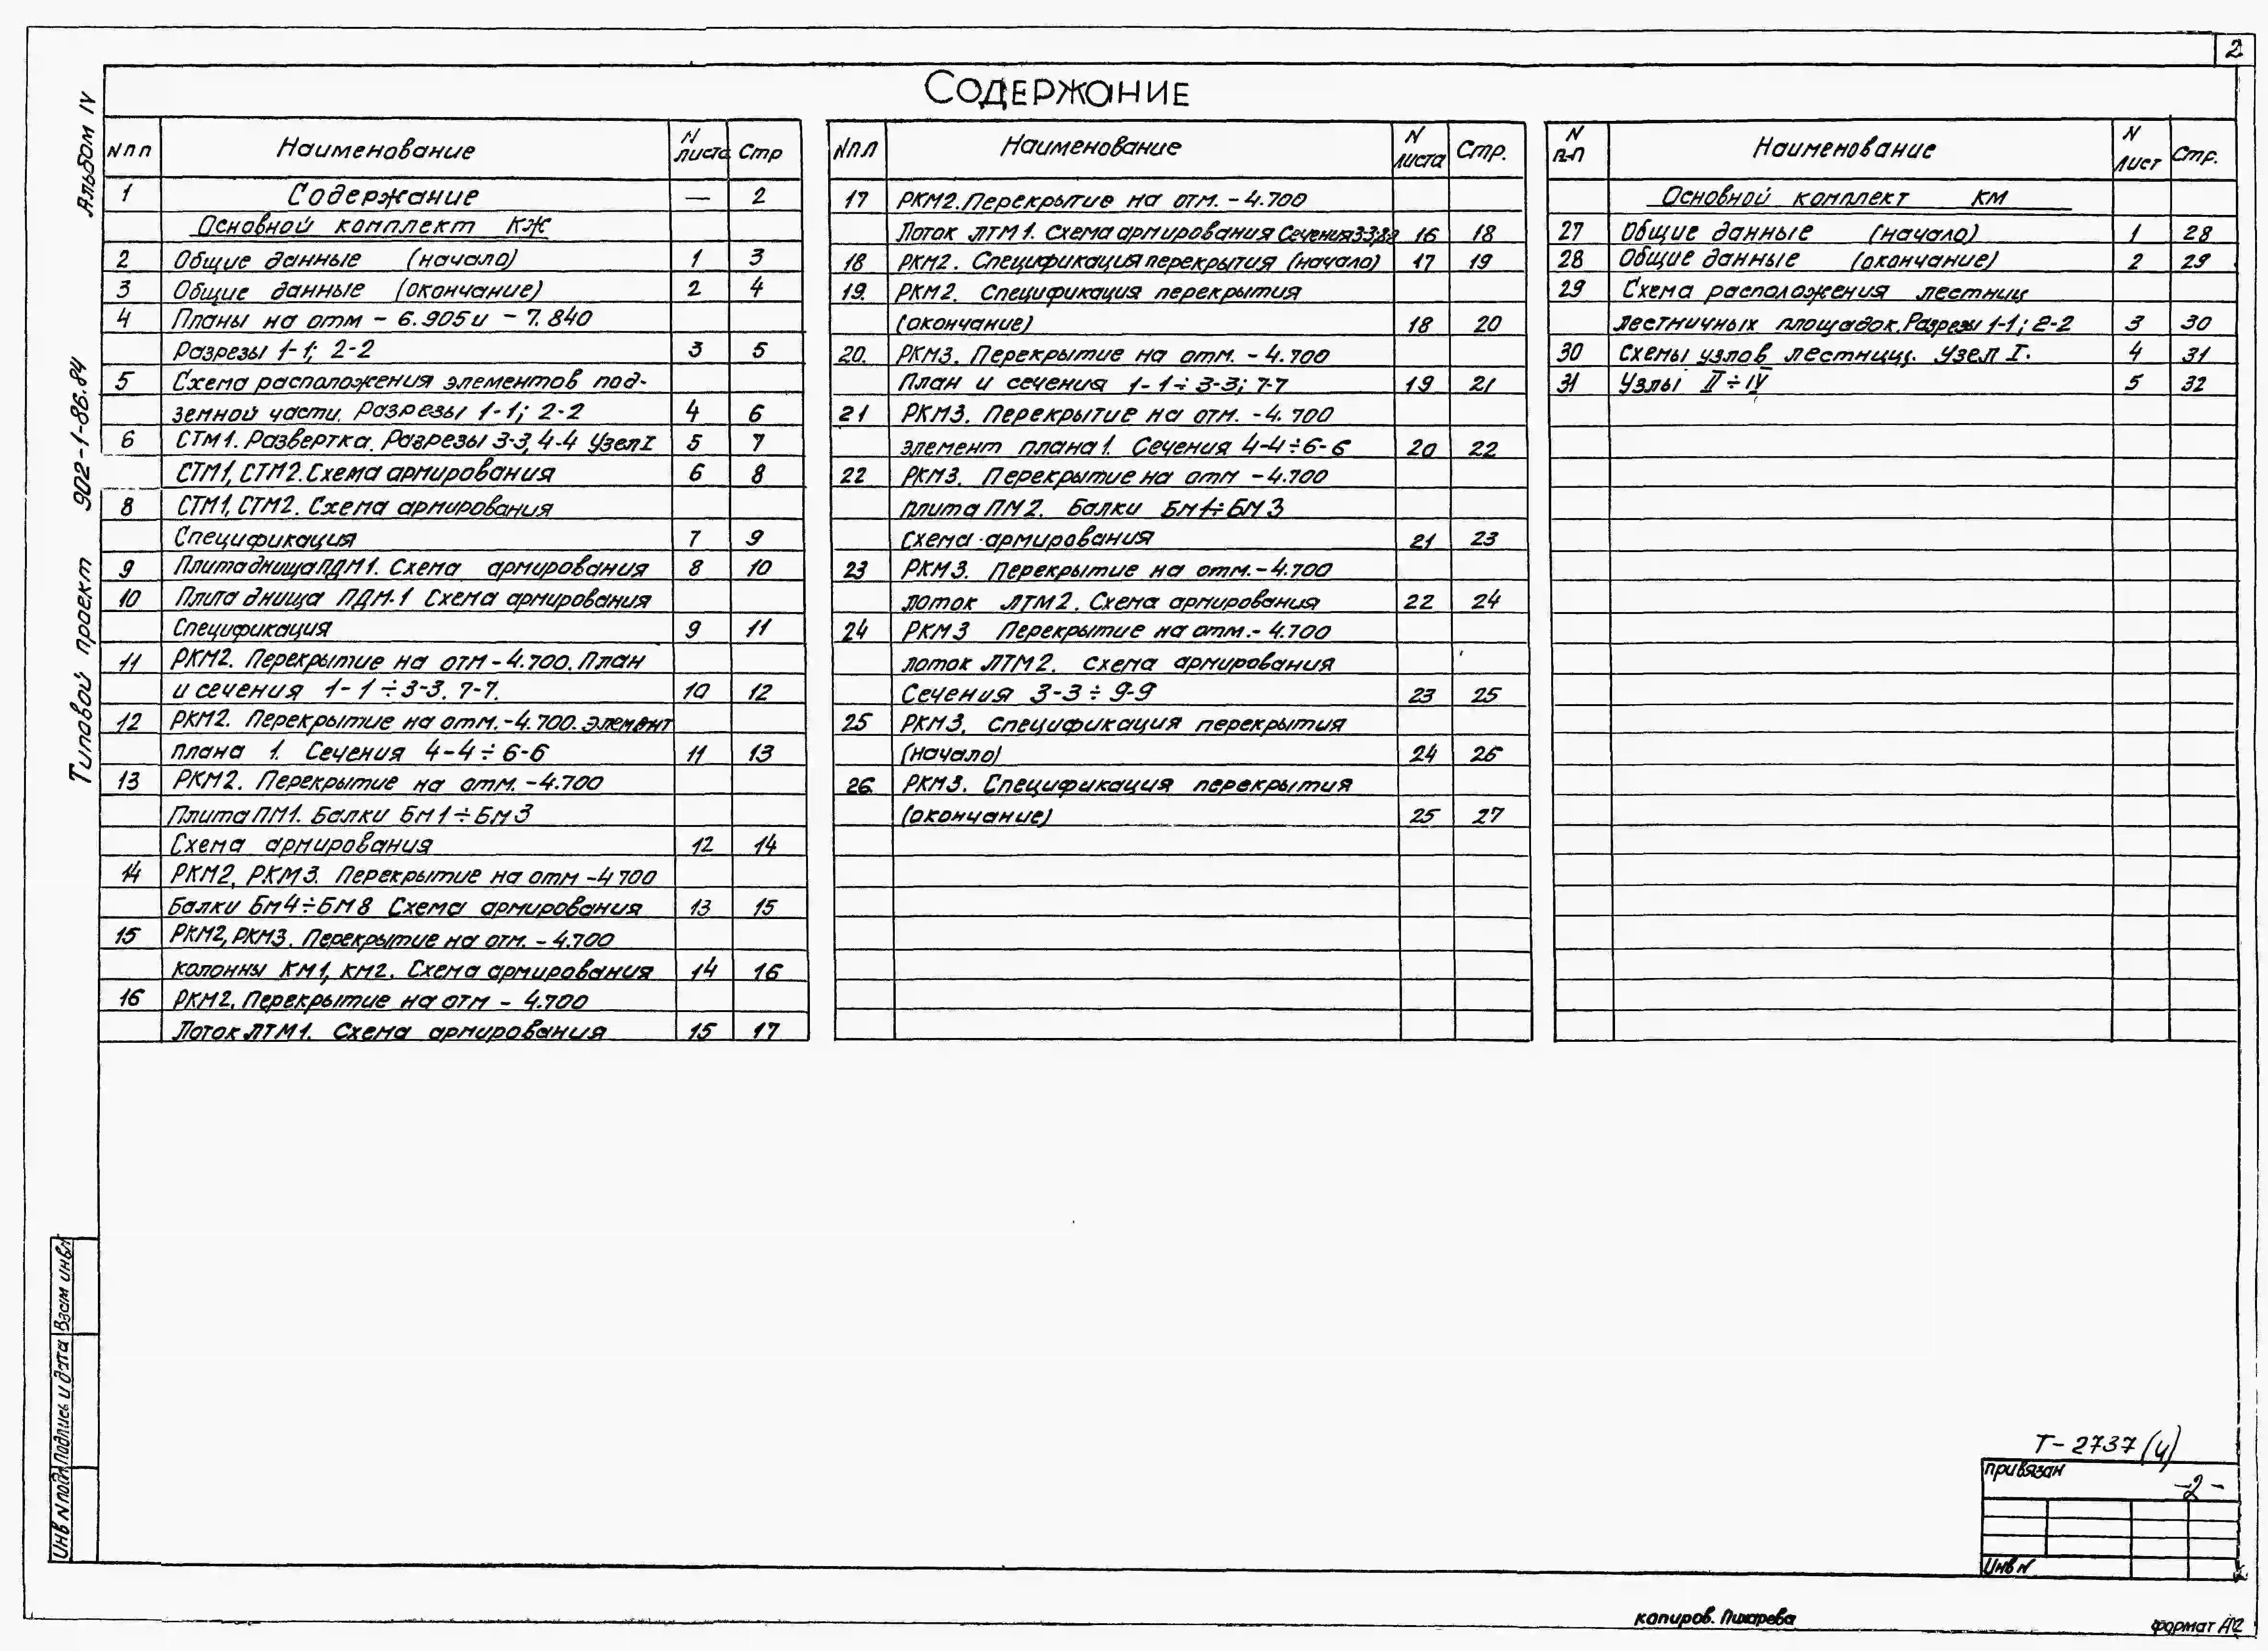 2
Содержание
Альбом IV
Типовой проект 902-1-86.84
N п п Наименование N листа Стр
1 Содержание — 2
Основной комплект КЖ
2 Общие данные (начало) 1 3
3 Общие данные (окончание) 2 4
4 Планы на отм - 6.905 и - 7.840
Разрезы 1-1; 2-2 3 5
5 Схема расположения элементов под-
земной части. Разрезы 1-1; 2-2 4 6
6 СТМ1. Развертка. Разрезы 3-3, 4-4 Узел I 5 7
СТМ1, СТМ2. Схема армирования 6 8
8 СТМ1, СТМ2. Схема армирования
Спецификация 7 9
9 Плита днища ПДМ1. Схема армирования 8 10
10 Плита днища ПДМ-1 Схема армирования
Спецификация 9 11
11 РКМ2. Перекрытие на отм - 4.700. План
и сечения 1-1 ÷ 3-3. 7-7. 10 12
12 РКМ2. Перекрытие на отм. - 4.700. Элемент
плана 1. Сечения 4-4 ÷ 6-6 11 13
13 РКМ2. Перекрытие на отм. -4.700
Плита ПМ1. Балки БМ1 ÷ БМ3
Схема армирования 12 14
14 РКМ2, РКМ3. Перекрытие на отм -4 700
Балки БМ4 ÷ БМ8 Схема армирования 13 15
15 РКМ2, РКМ3. Перекрытие на отм. - 4.700
колонны КМ1, КМ2. Схема армирования 14 16
16 РКМ2. Перекрытие на отм - 4.700
Лоток ЛТМ1. Схема армирования 15 17
N п.п Наименование N листа Стр.
17 РКМ2. Перекрытие на отм. - 4.700
Лоток ЛТМ1. Схема армирования Сечения 3-3; 8-8 16 18
18 РКМ2. Спецификация перекрытия (начало) 17 19
19. РКМ2. Спецификация перекрытия
(окончание) 18 20
20. РКМ3. Перекрытие на отм. - 4.700
План и сечения 1-1 ÷ 3-3; 7-7 19 21
21 РКМ3. Перекрытие на отм. -4. 700
элемент плана 1. Сечения 4-4 ÷ 6-6 20 22
22 РКМ3. Перекрытие на отм -4.700
плита ПМ2. Балки БМ1 ÷ БМ3
схема армирования 21 23
23 РКМ3. Перекрытие на отм. - 4.700
лоток ЛТМ2. Схема армирования 22 24
24 РКМ3 Перекрытие на отм. - 4.700
лоток ЛТМ2. схема армирования
Сечения 3-3 ÷ 9-9 23 25
25 РКМ3. Спецификация перекрытия
(начало) 24 26
26. РКМ3. Спецификация перекрытия
(окончание) 25 27
N п-п Наименование N Лист Стр.
Основной комплект КМ
27 Общие данные (начало) 1 28
28 Общие данные (окончание) 2 29
29 Схема расположения лестниц
лестничных площадок. Разрезы 1-1; 2-2 3 30
30 Схемы узлов лестницы. Узел I. 4 31
31 Узлы II ÷ IV 5 32
Взам инв N
Подпись и дата
Инв N подл
Т- 2737 (4)
привязан
-2-
Инв N
копиров. Пикарева
формат А2